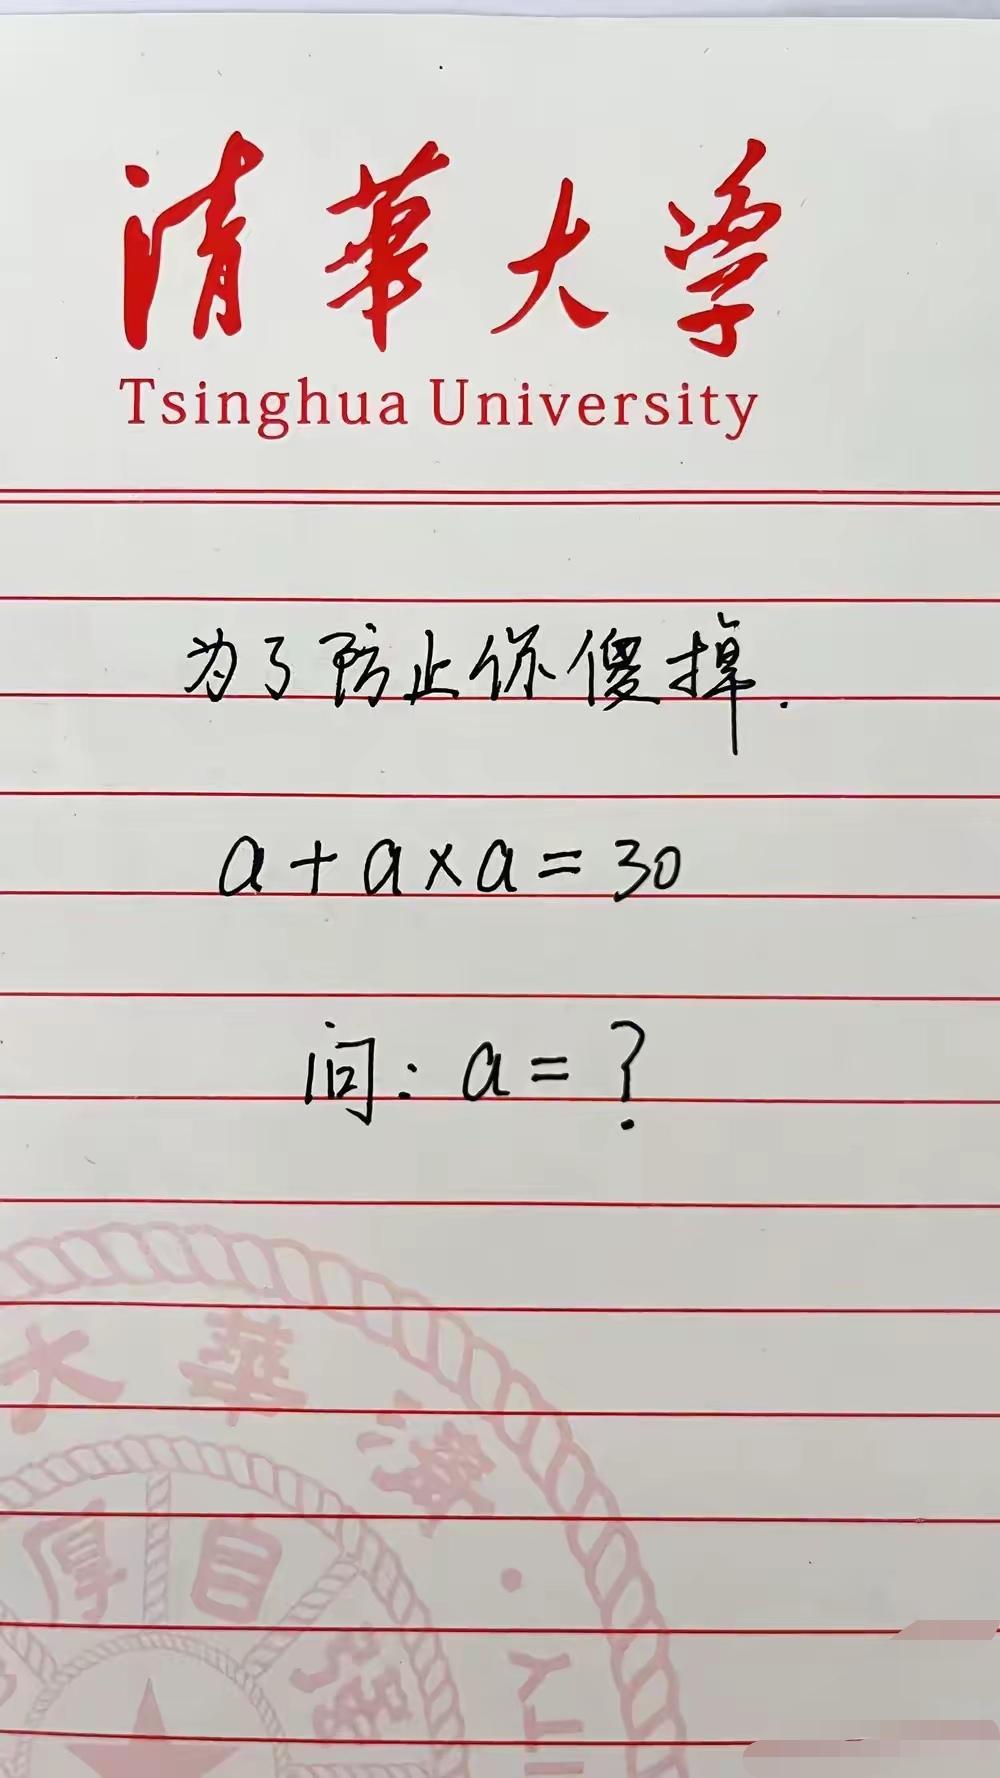 清華大学
Tsinghua University
为了防止你傻掉.
a + a × a = 30
问: a = ?
大 華 清 ·
厚 自
TY